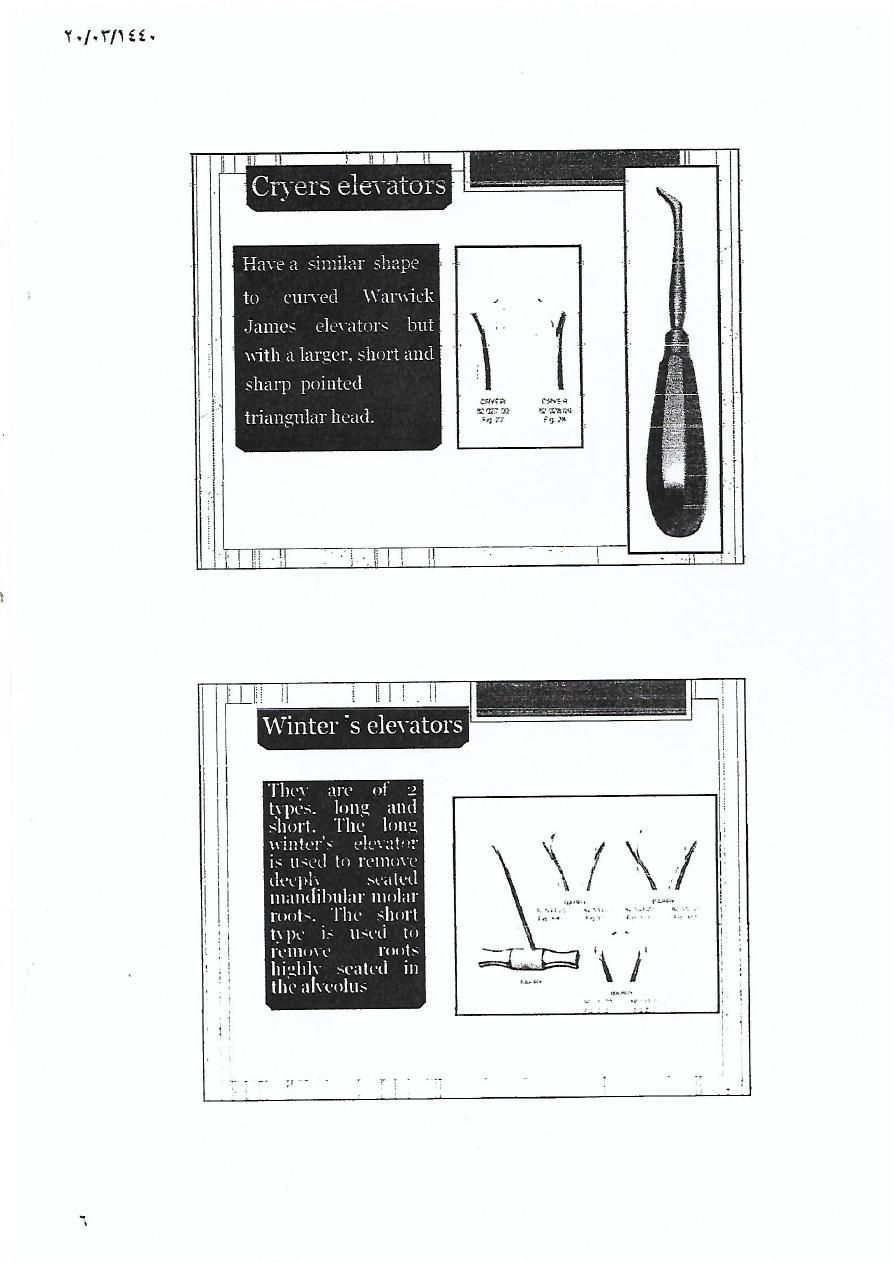 ٢٠/٠٣/١٤٤٠
Cryers elevators
Have a similar shape
to curved Warwick
James elevators but
with a larger, short and
sharp pointed
triangular head.
CRYER CRYER
Fig. 27 Fig. 28
Winter´s elevators
They are of 2
types. long and
short. The long
winter's elevator
is used to remove
deeply seated
mandibular molar
roots. The short
type is used to
remove roots
highly seated in
the alveolus
BARRY BARRY
BARRY
BARRY
٦